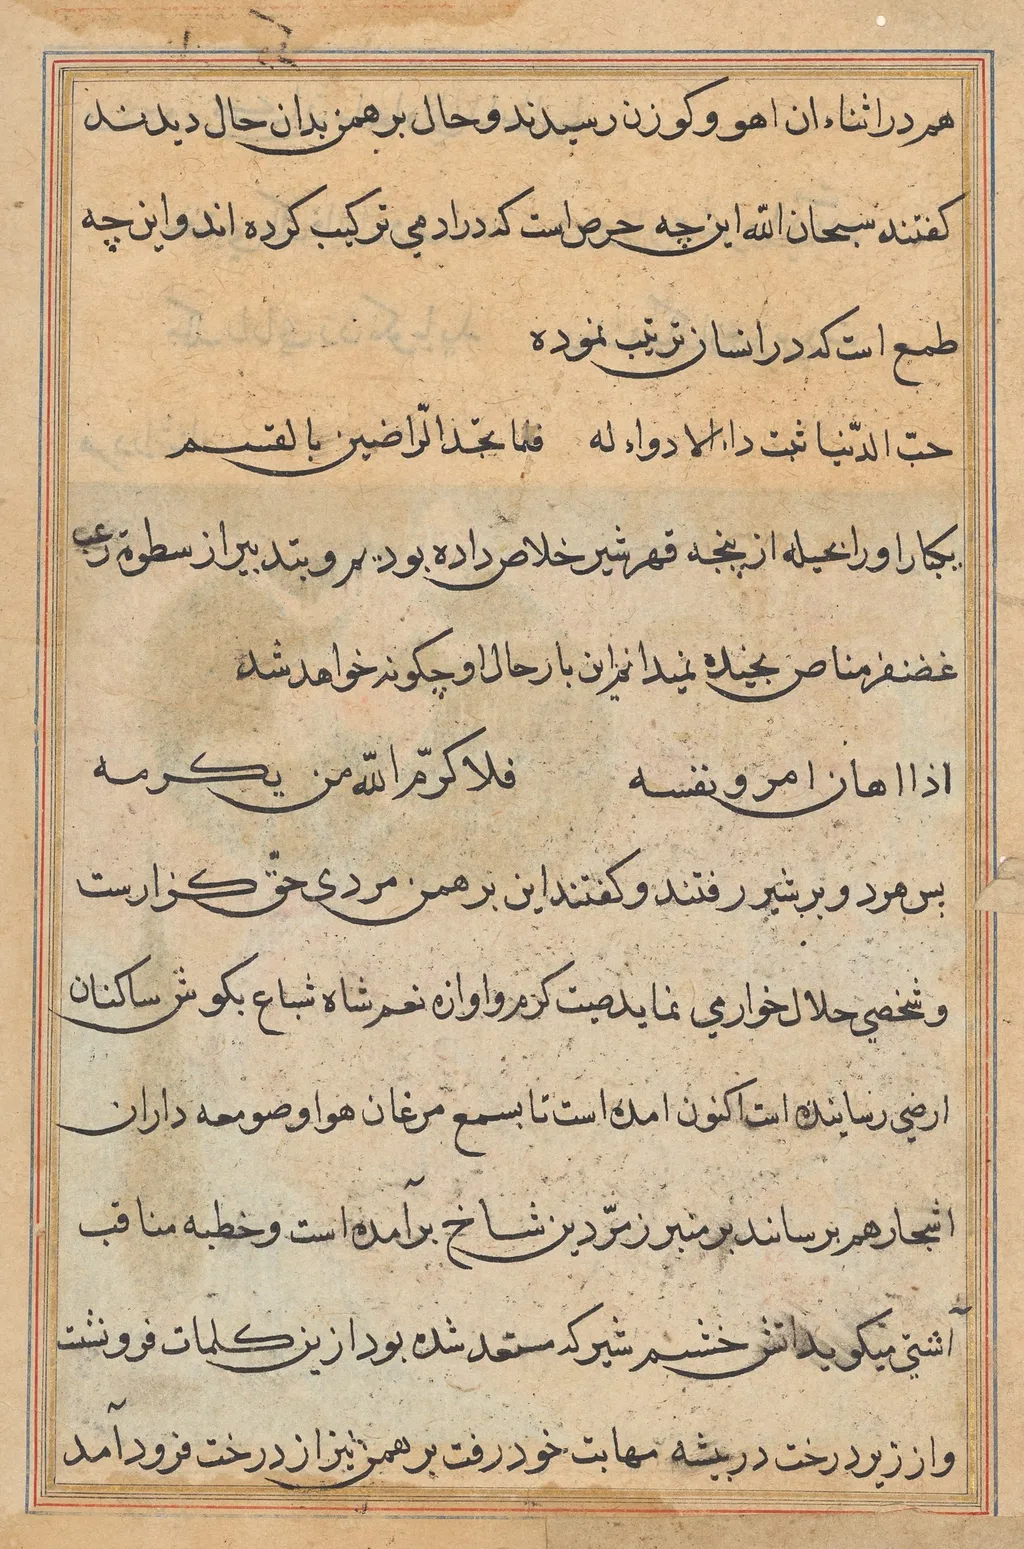 هم در اثناء ان اهو و كوزن رسیدند و حال برهمن بدان حال دیدند
كفتند سبحان الله این چه حرص است كه در ادمي تركیب كرده اند و این چه
طمع است كه در انسان ترتیب نموده
حبّ الدّنیا ثبت داء لا دواء له فما تجد الرّاضین بالقسم
یكبار او را بحیله از پنجه قهر شیر خلاص داده بودیم و بتدبیر از سطوة رعب
غضنفر مناص نمیدانم این بار حال او چكونه خواهد شد
اذا اهان امرو نفسه فلا كرّم الله من یكرمه
پس هر دو بر شیر رفتند و كفتند این برهمن مردی حقّ كزارست
و شخصي حلال خوار مي نماید صیت كرم و اوازه نعم شاه سباع بكوش ساكنان
ارضي رسانیده است اكنون امده است تا بسمع مرغان هوا و صومعه داران
اشجار هم برساند بر منبر زمرّدین شاخ برآمده است و خطبه مناقب
آشتي میكوید اتش خشم شیر كه مستعد شده بود ازین كلمات فرو نشت
و از زیر درخت در بیشه مهابت خود رفت برهمن نیز از درخت فرود آمد